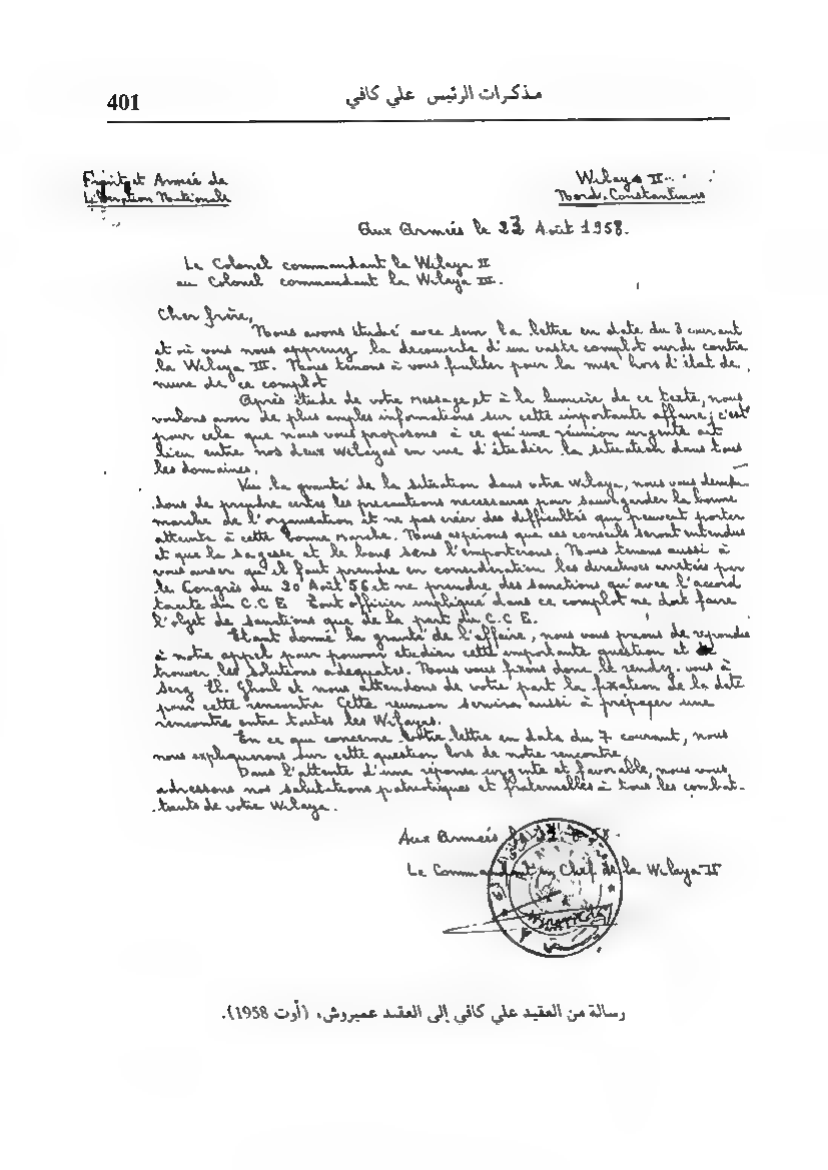 401
مذكرات الرئيس علي كافي
Front et Armée de
Libération Nationale
Wilaya II
Nord. Constantinois
Aux Armées le 23 Août 1958.
Le Colonel commandant la Wilaya II
au Colonel commandant la Wilaya III.
Cher frère,
Nous avons étudié avec soin la lettre en date du 3 courant
et où vous nous apprenez la découverte d'un vaste complot ourdi contre
la Wilaya III. Nous tenons à vous féliciter pour la mise hors d'état de
nuire de ce complot
Après étude de votre Message, et à la lumière de ce texte, nous
voulons avoir de plus amples informations sur cette importante affaire; c'est
pour cela que nous vous proposons à ce qu'une réunion urgente ait
lieu entre nos deux wilayas en vue d'étudier la situation dans tous
les domaines.
Vu la gravité de la situation dans votre wilaya, nous vous deman-
dons de prendre certes les précautions nécessaires pour sauvegarder la bonne
marche de l'organisation et ne pas créer des difficultés qui peuvent porter
atteinte à cette bonne marche. Nous espérons que ces conseils seront entendus
et que la sagesse et le bons sens l'emporterons. Nous tenons aussi à
vous aviser qu'il faut prendre en considération les directives arrêtés par
le Congrès du 20 Août 56 et ne prendre des sanctions qu'avec l'accord
tacite du C.C.E Tout officier impliqué dans ce complot ne doit faire
l'objet de sanctions que de la part du C.C.E.
Etant donné la gravité de l'affaire, nous vous prions de répondre
à notre appel pour pouvoir étudier cette importante question et
trouver les solutions adéquates. Nous vous fixons donc le rendez-vous à
Serg El. Ghoul et nous attendons de votre part la fixation de la date
pour cette rencontre. Cette réunion servira aussi à préparer une
rencontre entre toutes les Wilayas.
En ce que concerne votre lettre en date du 7 courant, nous
nous expliquerons sur cette question lors de notre rencontre.
Dans l'attente d'une réponse urgente et favorable, nous vous
adressons nos salutations patriotiques et fraternelles à tous les combat-
tants de votre Wilaya.
Aux Armées le 58.
Le Commandant en Chef de la Wilaya II
رسالة من العقيد علي كافي إلى العقيد عميروش، (أوت 1958).